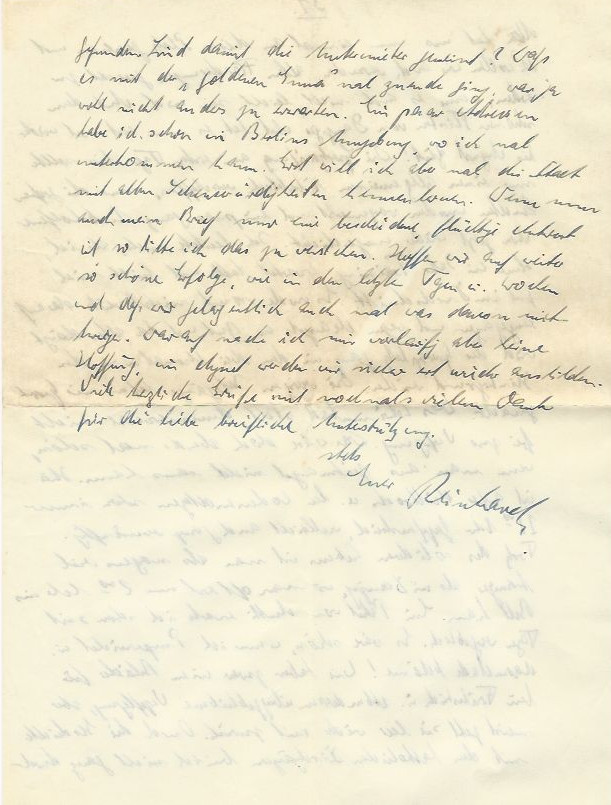 gefunden. Sind damit die Untermieter gemeint? Daß
es mit der „goldenen Emma" mal zuende ging, war ja
wohl nicht anders zu erwarten. Ein paar Adressen
habe ich schon in Berlins Umgebung, wo ich mal
unterkommen kann. Erst will ich aber mal die Stadt
mit allen Sehenswürdigkeiten kennenlernen. Wenn nun
auch mein Brief nur eine bescheidene, flüchtige Antwort
ist so bitte ich das zu verstehen. Hoffen wir auf weiter
so schöne Erfolge, wie in den letzten Tagen u. Wochen
und daß wir gelegentlich auch mal was davon mit-
kriegen. Darauf mache ich mir vorläufig aber keine
Hoffnung, werden wir sicher erst wieder ausbilden.
Viele herzliche Grüße mit nochmals vielem Dank
für die liebe briefliche Unterstützung.
stets
Euer Reinhard